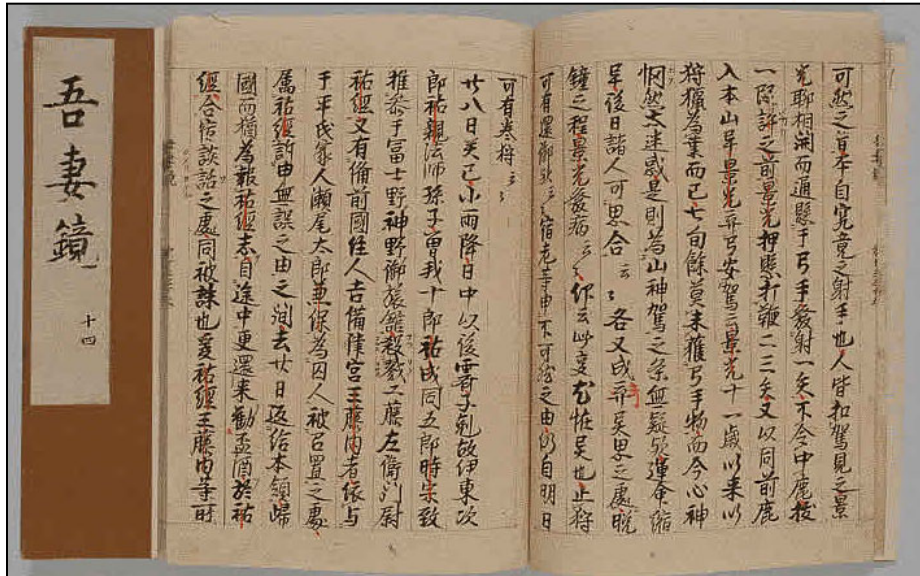 可然之旨本自究竟之射手也人皆扣駕見之景
光聊相開而通懸于弓手發射一矢不令中鹿拔
一段許之前景光押懸打鞭二三矢又以同前鹿
入本山早景光弃弓安駕云景光十一歳以来以
狩獵為業而已七旬餘莫未獲弓手物而今心神
惘然太迷惑是則為山神駕之条無疑歟運命縮
早後日諸人可思合云〻各又成弃異思之處晩
鐘之程景光發病云〻仰云此叓尤恠異也止狩
可有還御歟云〻宿老等申不可然之由仍自明日
可有巻狩云〻
廿八日癸巳小雨降日中以後霽子剋故伊東次
郎祐親法師孫子曽我十郎祐成同五郎時宗致
推参于冨士野神野御旅舘殺戮工藤左衛門尉
祐經又有備前國住人吉備津宮王藤内者依与
于平氏家人瀬尾太郎兼保為囚人被召置之處
属祐經訴申無誤之由之間去廿日返給本領歸
國而猶為報祐經志自途中更還来勧盃酒於祐
經合宿談話之處同被誅也爰祐經王藤内等所
吾妻鏡
十四